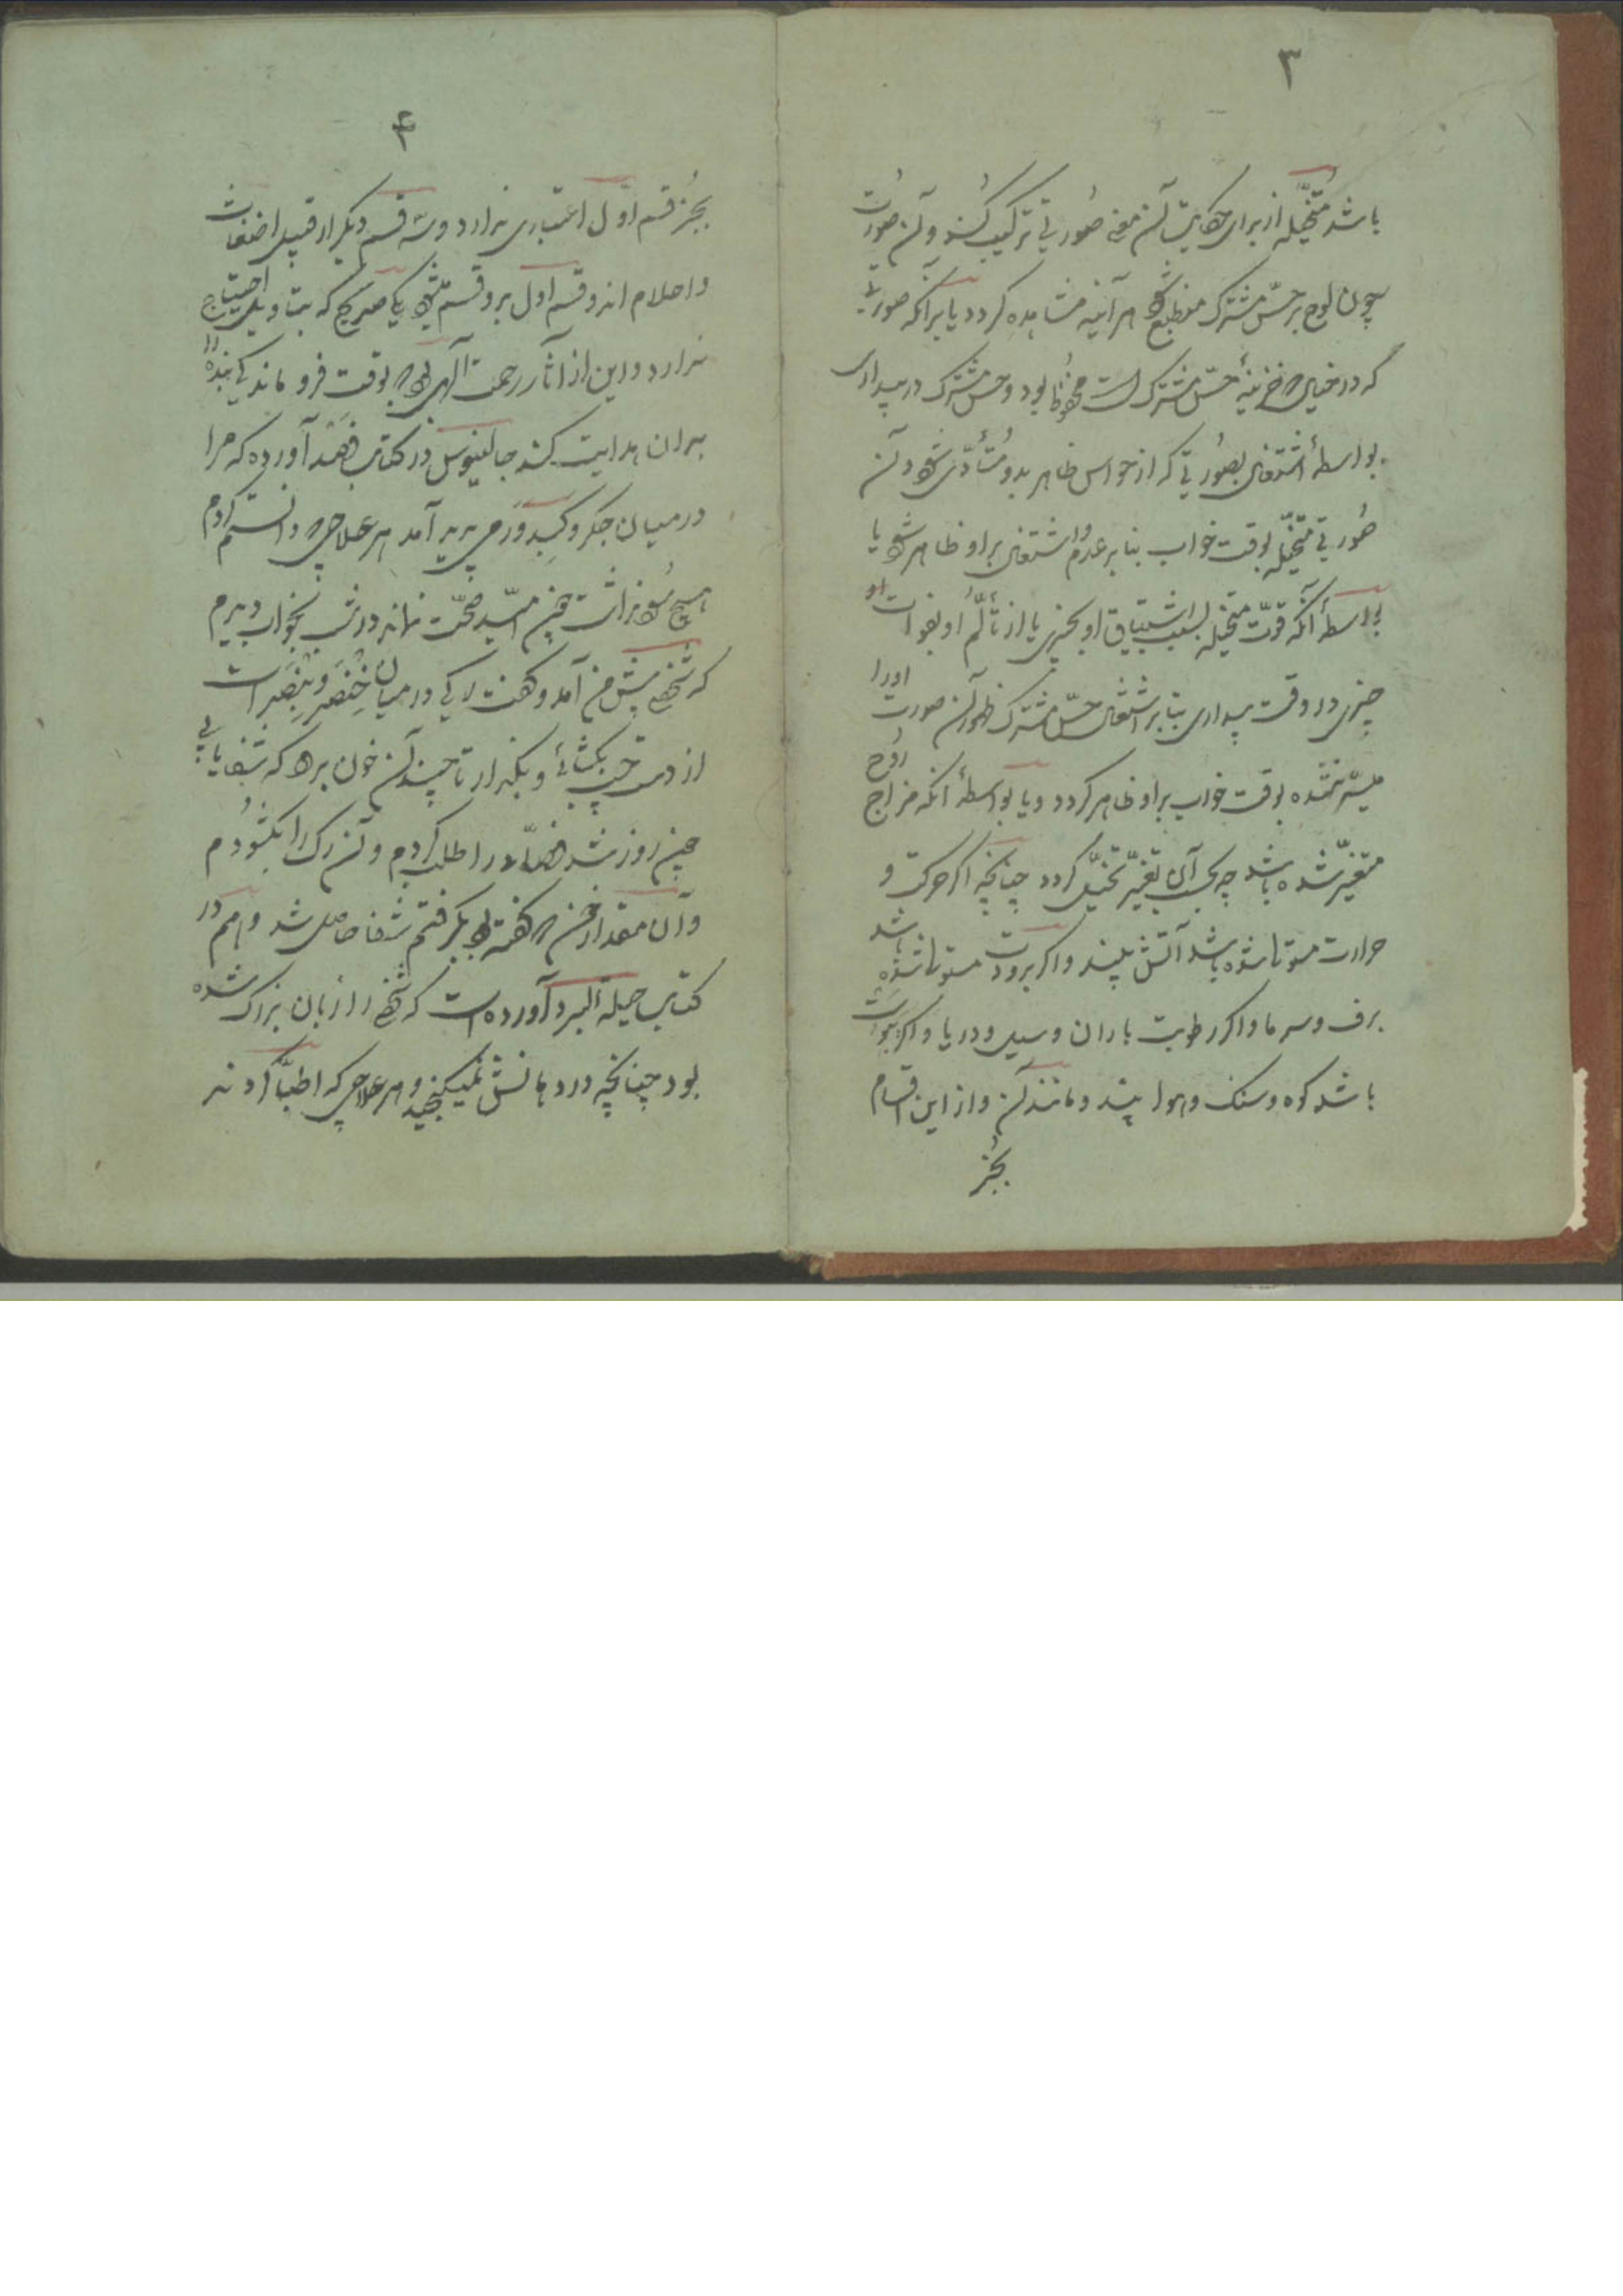 ۳
باشد متخیّله از برای حکایت آن معنی صورتی ترکیب کند و آن صورت
چون بلوح حسّ مشترک منطبع شود هر آینه مشاهده کردد یا برآنکه صورتی
که در خیال که خزینهٔ حسّ مشترک است محفوظ بود و حسّ مشترک در بیداری
بواسطهٔ اشتغال بصورتی که از حواس ظاهر بدو متأدّی شود آن
صورتی متخیّله بوقت خواب بنا بر عدم اشتغال بر او ظاهر شود یا
بواسطهٔ آنکه قوّت متخیله بسبب اشتیاق او بچیزی یا از تألّم او بفوات او
چیزی در وقت بیداری بنا بر اشتغال حسّ مشترک ظهور آن صورت او را
میسّر نشده بوقت خواب بر او ظاهر کردد و یا بواسطهٔ آنکه مزاج روح
متغیّر شده باشد چه بحسب آن تغیّر تخیّل کردد چنانچه اکر حرکت و
حرارت مستولی شده باشد آتش بیند و اکر برودت مستولی شده باشد
برف و سرما و اکر رطوبت باران و سیل و دریا و اکر یبوست
باشد کوه و سنک و هوا بیند و مانند آن و از این اقسام
بجز
۴
بجز قسم اوّل اعتباری ندارد و سه قسم دیکر از قبیل اضغاث
و احلام اند و قسم اول بر دو قسم میشود یکی صریح که بتاویل احتیاج
ندارد و این از آثار رحمت آلهی بود که بوقت فروماندکی بنده را
بدان هدایت کند جالینوس در کتاب فصد آورده که مرا
در میان جکر و کبد ورمی پدید آمد هر علاجی که دانستم کردم
هیچ سود نداشت چون امید صحّت نماند در شب بخواب دیدم
که شخصی پیش من آمد و کفت رکی در میان خنصر و بنصر است
از دست چپ بکشائی و بکذار تا چند آن خون برود که شفا یابی
چون روز شد فصّاد را طلب کردم و آن رک را بکشودم
و آن مقدار خون که کفته بود بکرفتم شفا حاصل شد و هم در
کتاب حیلة البرء آورده است که شخصی را زبان بزرک شده
بود چنانچه در دهانش نمیکنجید و هر علاجی که اطبّا کردند